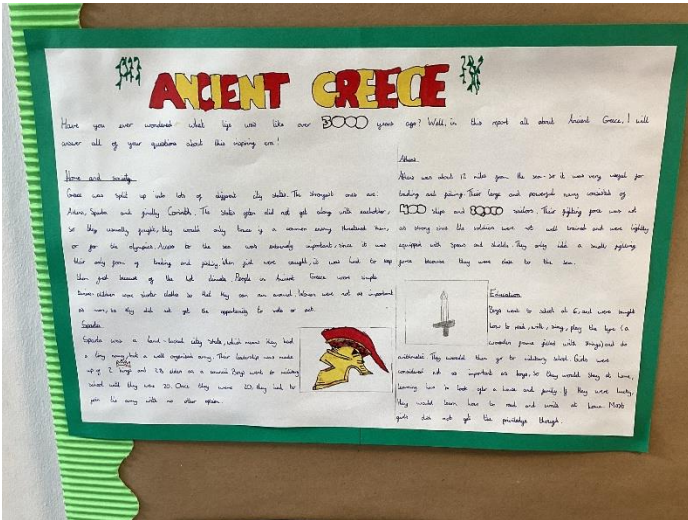 ANCIENT GREECE
Have you ever wondered what life was like over 3000 years ago? Well, in this report all about Ancient Greece, I will
answer all of your questions about this inspiring era!
Home and society
Greece was split up into lots of different city states. The strongest ones are:
Athens, Sparta and finally Corinth. The states often did not get along with eachother,
so they usually fought, they would only unless if a common enemy threatened them,
or for the olympics. Access to the sea was extremely important, since it was
their only form of trading and fishing. When fish were caught, it was hard to keep
them fresh because of the hot climate. People in Ancient Greece wore simple
tunics. children wore shorter clothes so that they can run around. Women were not as important
as men, so they did not get the opportunity to vote or act.
Sparta
Sparta was a land-locked city state, which means they had
a tiny navy, but a well organised army. Their leadership was made
up of 2 kings and 28 elders on a council. Boys went to military
school until they were 20. Once they were 20, they had to
join the army with no other option.
Athens
Athens was about 12 miles from the sea - so it was very useful for
trading and fishing. Their large and powerful navy consisted of
400 ships and sailors. Their fighting force was not
as strong since the soldiers were not well trained and were lightly
equipped with spears and shields. They only had a small fighting
force because they were close to the sea.
Education
Boys went to school at 6, and were taught
how to read, write, sing, play the lyre (a
wooden frame filled with strings) and do
arithmetic. They would then go to military school. Girls were
considered not as important as boys, so they would stay at home,
learning how to look after a house and family. If they were lucky,
they would learn how to read and write at home. Most
girls did not get the priviledge though.